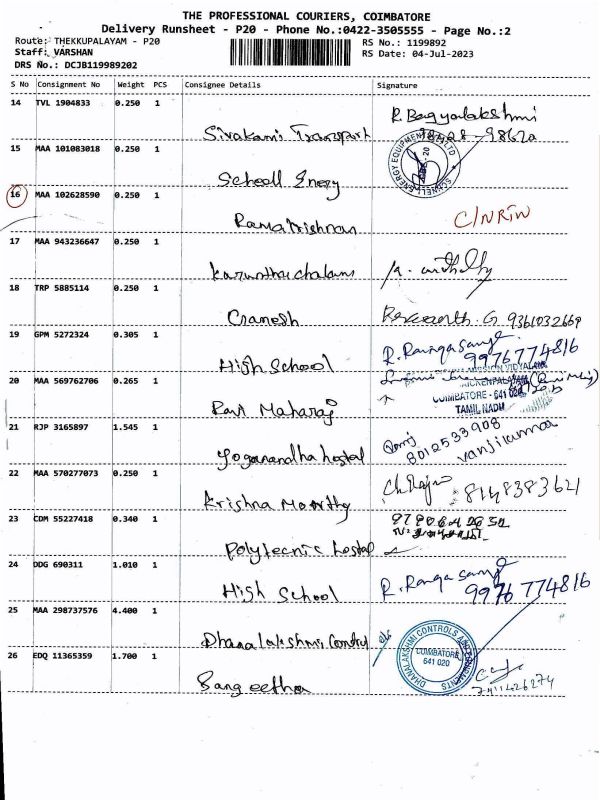 THE PROFESSIONAL COURIERS, COIMBATORE
Delivery Runsheet - P20 - Phone No.:0422-3505555 - Page No.:2
Route: THEKKUPALAYAM - P20
RS No.: 1199892
Staff: VARSHAN
RS Date: 04-Jul-2023
DRS No.: DCJB119989202
S No Consignment No Weight PCS Consignee Details Signature
14 TVL 1904833 0.250 1 Sivakami Transport R. Bagyalakshmi
15 MAA 101083018 0.250 1 Schoell Energy
16 MAA 102628590 0.250 1 Rama Krishnan C/NRIN
17 MAA 943236647 0.250 1
18 TRP 5885114 0.250 1 Ganesh 9361032669
19 GPM 5272324 0.305 1 High School R. Rangasamy
9976774816
20 MAA 569762706 0.265 1 Ravi Maharaj
COIMBATORE - 641 020
TAMIL NADU
21 RJP 3165897 1.545 1 Yoganandha hostal 8012533908
vanjikumar
22 MAA 570277073 0.250 1 Krishna Moorthy 8148383621
23 CDM 55227418 0.340 1 Polytecnic hostal
24 DDG 690311 1.010 1 High School R. Rangasamy
9976 774816
25 MAA 298737576 4.400 1 Dhanalakshmi Control
DHANALAKSHMI CONTROLS AND
COIMBATORE
641 020
26 EDQ 11365359 1.700 1 Sangeetha